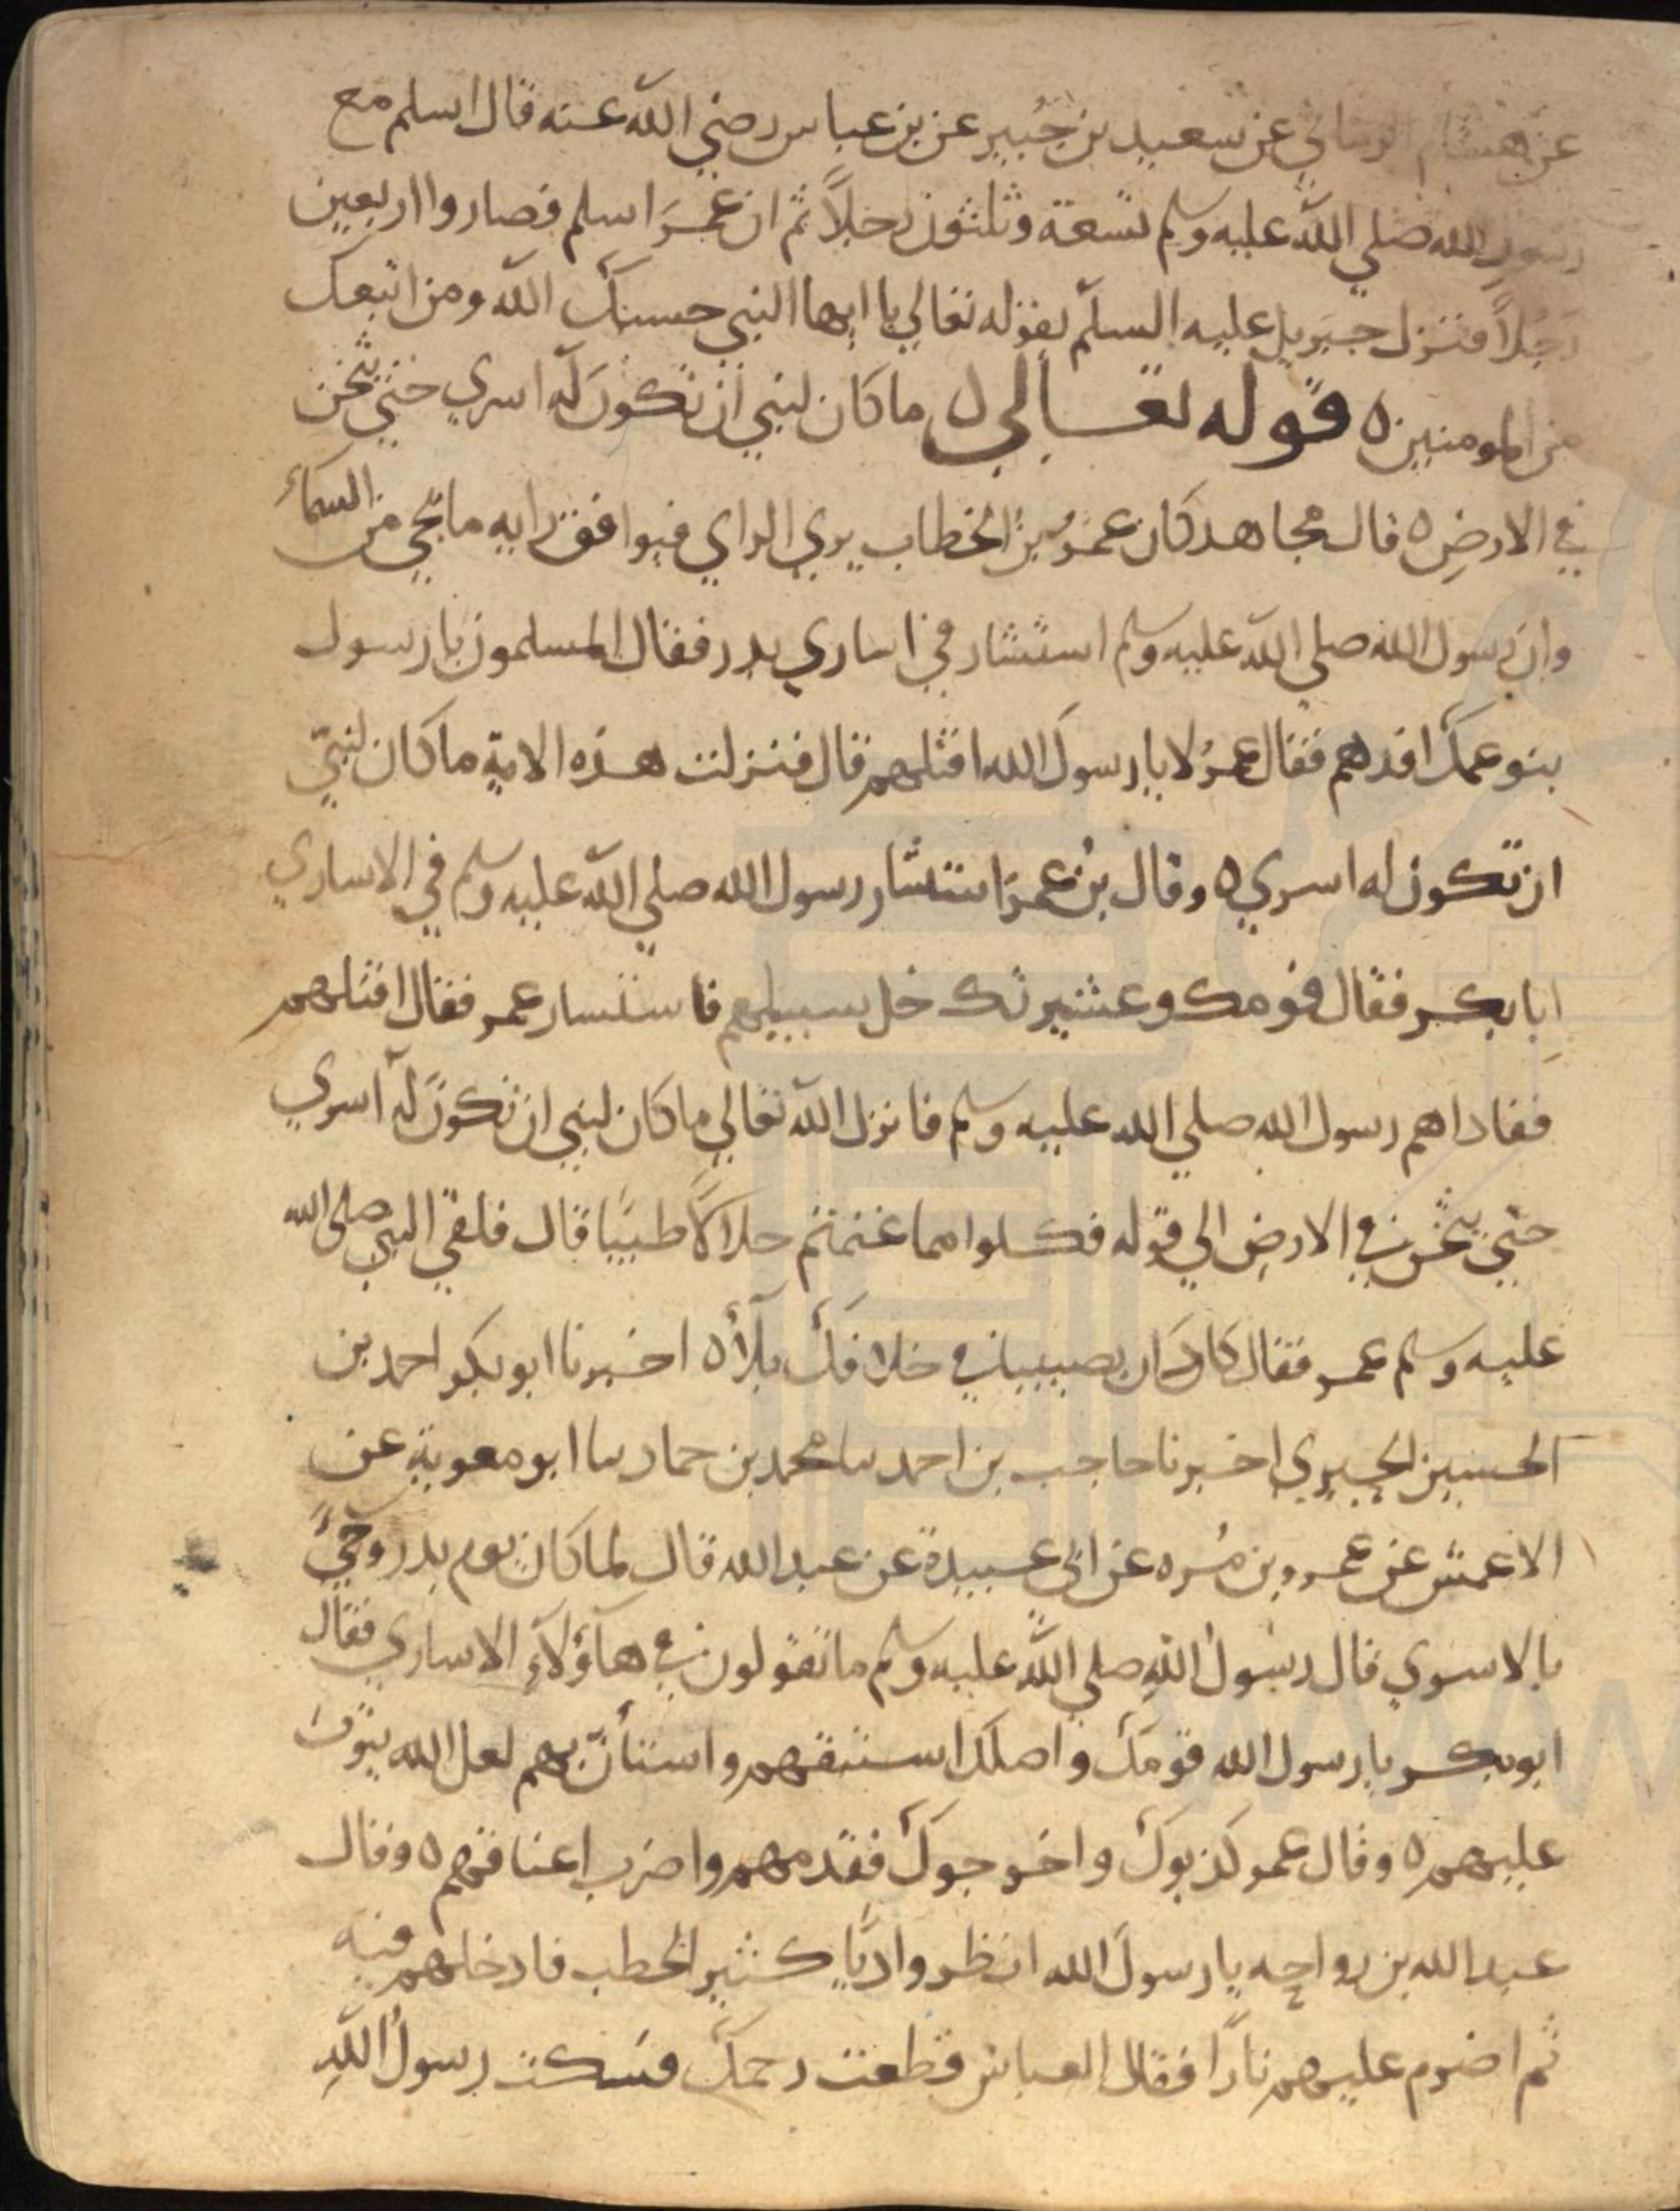 عن هشام الرماني عن سعيد بن جُبير عن بن عباس رضي الله عنه قال اسلم مع
رسول الله صلي الله عليه وسلم تسعة وثلثون رجلاً ثم ان عمرَ اسلم فصاروا اربعين
رَجُلاً فنزل جبريل عليه السلم بقوله تعالي يا ايها النبي حسبك الله ومن اتبعك
من المومنين ه قوله تعالي ه ما كان لنبي ان تكونَ له اسري حتي يثخن
في الارضِ ه قال مجاهد كان عمرُ بن الخطاب يري الراي فيوافق رايه ما يجي من السماء
وان رسول الله صلي الله عليه وسلم استشار في اساري بدر فقال المسلمون يا رسول
بنو عمك افدهم فقال عمرُ لا يا رسولَ الله اقتلهم قال فنزلت هذه الاية ما كان لنبيّ
ان تكون له اسري ه وقال بن عمرَ استشار رسول الله صلي الله عليه وسلم في الاساري
ابا بكر فقال قومك وعشيرتك خل سبيلهم فاستشار عمر فقال اقتلهم
ففاداهم رسول الله صلي الله عليه وسلم فانزل الله تعالي ما كان لنبي ان تكونَ له اسري
حتي يثخن في الارضِ الي قوله فكلوا مما غنمتم حلالاً طيبًا قال فلقي النبي صلى الله
عليه وسلم عمر فقال كادَ ان يصيبنا في خلافك بلاٌ ه اخبرنا ابو بكر احمد بن
الحسين الحيري اخبرنا حاجب بن احمد سا محمد بن حماد سا ابو معوية عن
الاعمش عن عمرو بن مُره عن ابي عبيدة عن عبد الله قال لما كان يوم بدر وجيً
بالاسري قال رسولُ اللهِ صلي الله عليه وسلم ما تقولون في هآؤلآءِ الاساري فقال
ابو بكر يا رسول الله قومَك واصلك استبقهم واستأنّ بهم لعل الله يتوبَ
عليهم ه وقال عمر كذبوك واخرجوك فقدمهم واضرب اعناقهم ه وقال
عبد الله بن رواحه يا رسولَ الله انظر واديًا كثير الحطب فادخلهم فيه
ثم اضرم عليهم نارًا فقال العباس قطعت رحمك فسَكت رسولُ اللّهِ